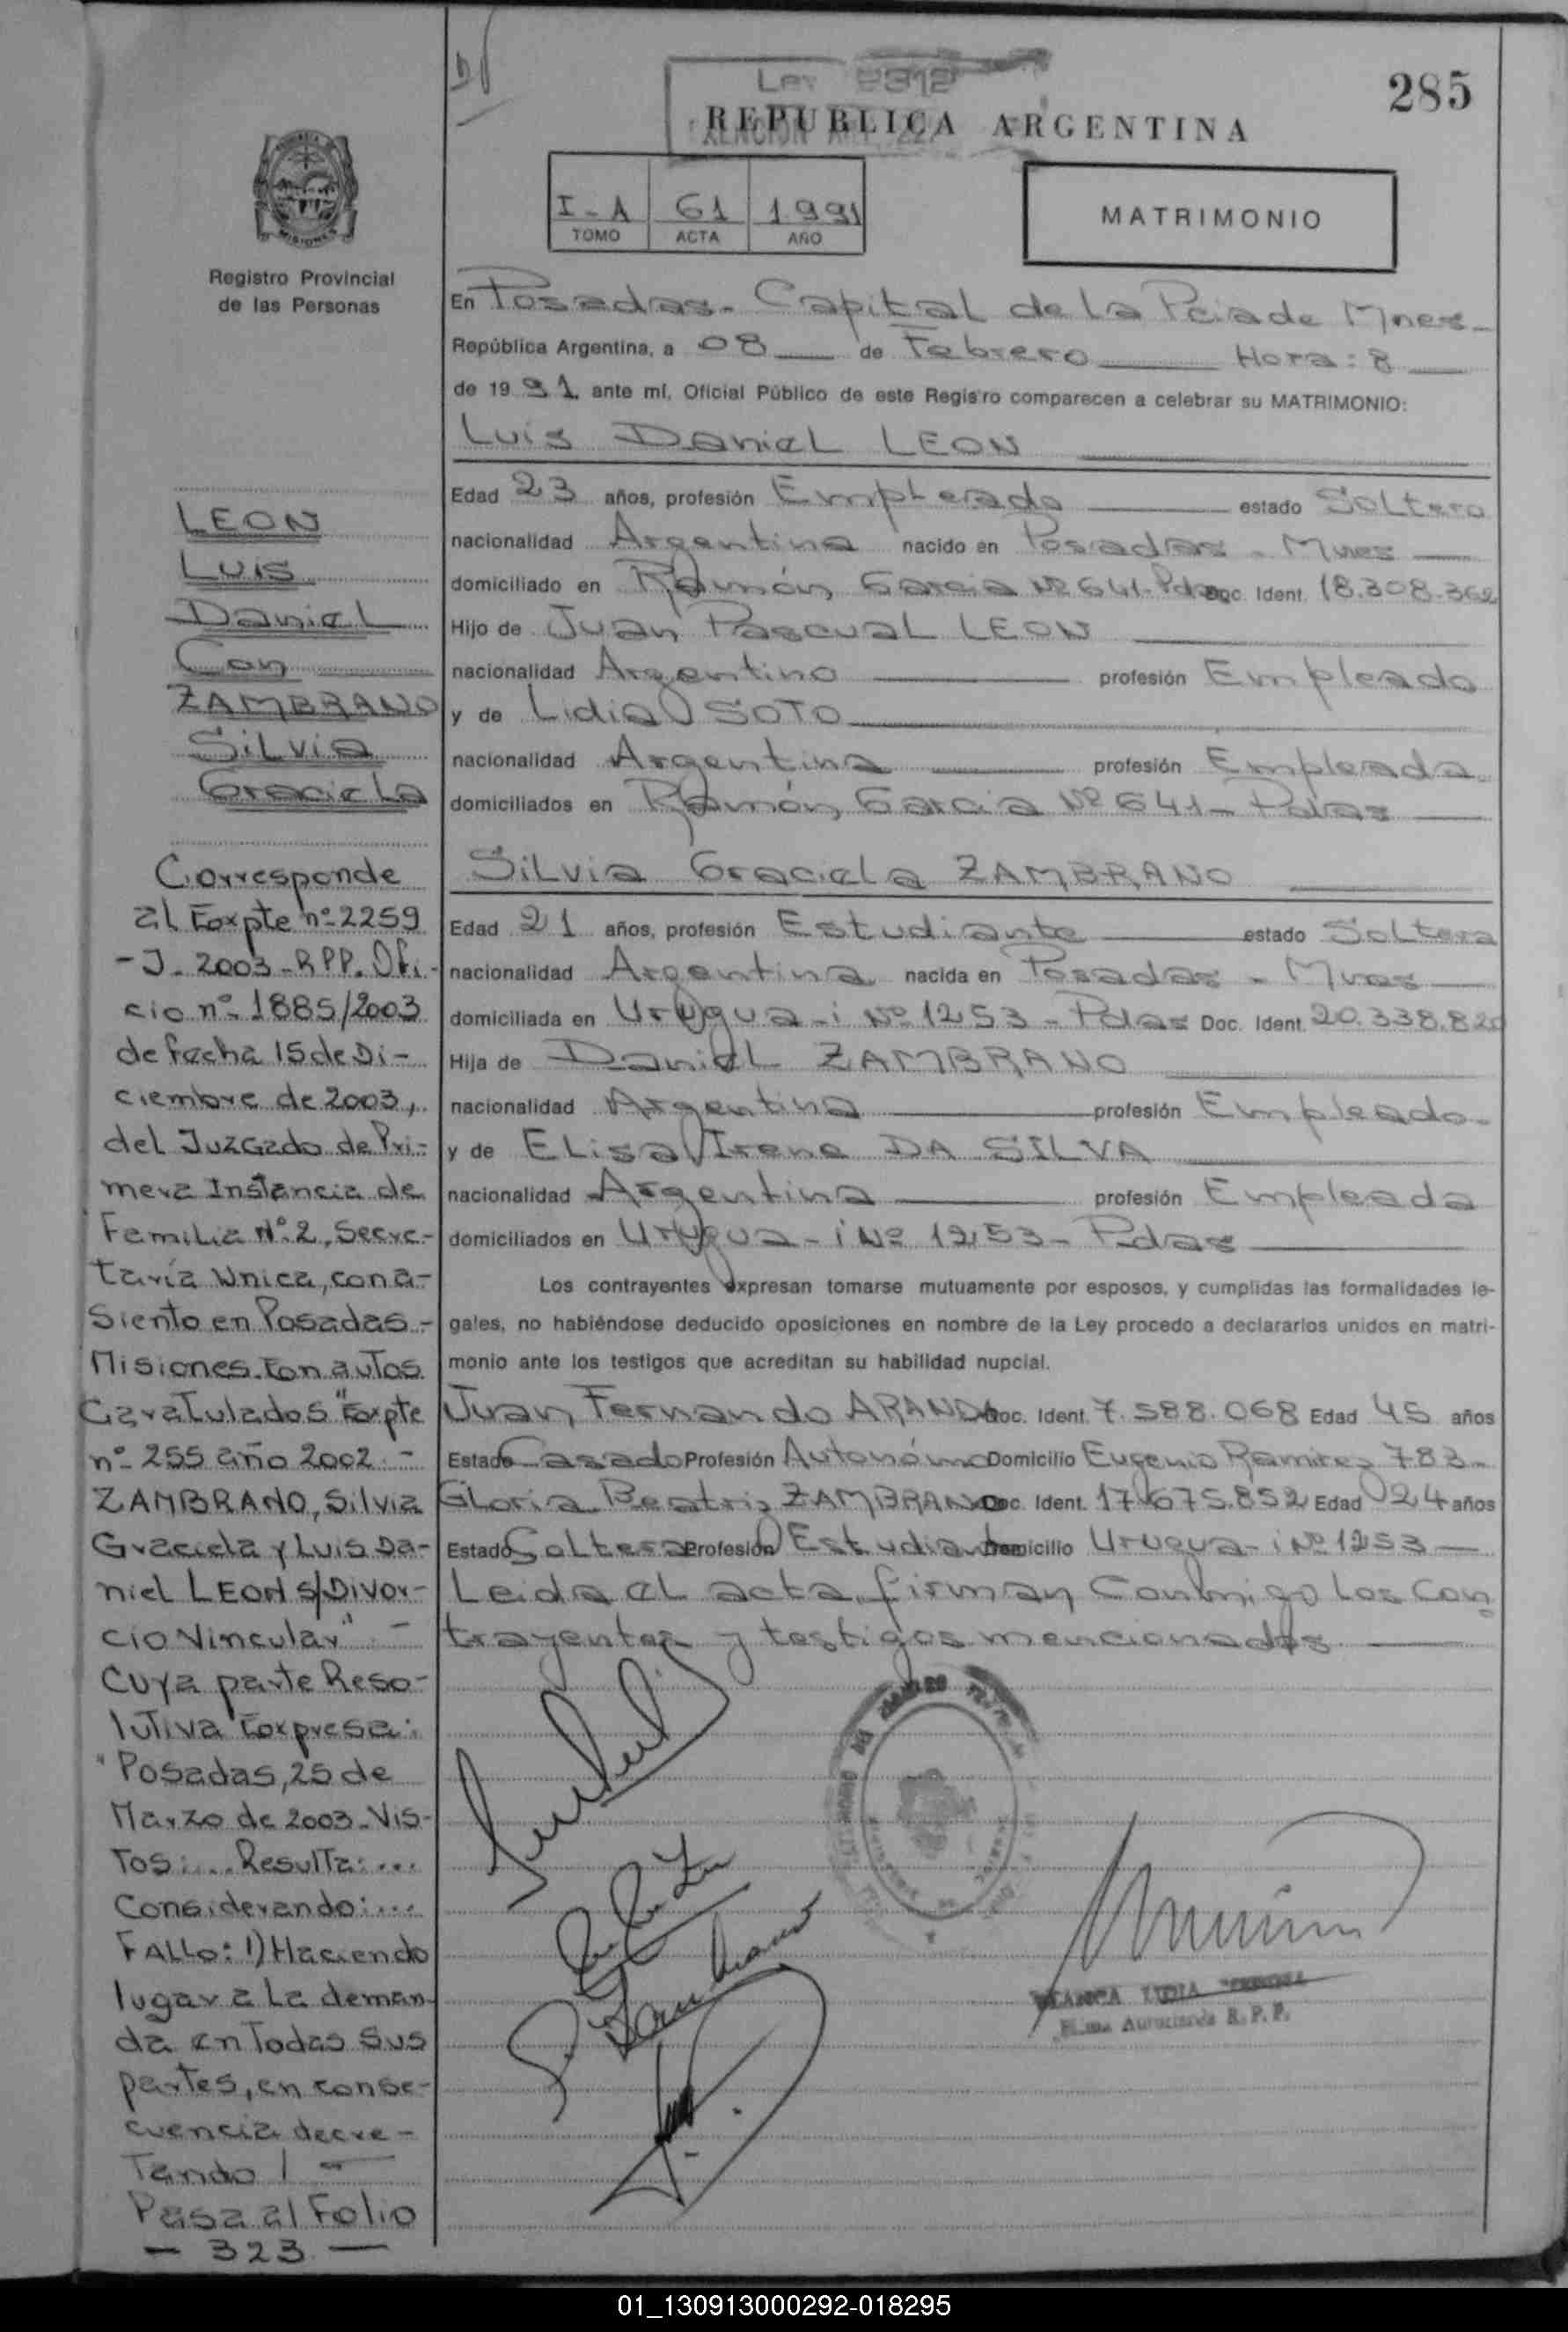 285
Ley 2312
REPUBLICA ARGENTINA
I-A 61 1991
TOMO ACTA AÑO
MATRIMONIO
MISIONES
Registro Provincial
de las Personas
En Posadas - Capital de la Pcia de Mnes -
República Argentina, a 08 de Febrero Hora: 8
de 1991 ante mí, Oficial Público de este Registro comparecen a celebrar su MATRIMONIO:
Luis Daniel LEON
Edad 23 años, profesión Empleado estado Soltero
nacionalidad Argentina nacido en Posadas - Mnes
domiciliado en Ramón Garcia Nº 641 - Pdas Doc. Ident. 18.308.362
Hijo de Juan Pascual LEON
nacionalidad Argentino profesión Empleado
y de Lidia SOTO
nacionalidad Argentina profesión Empleada
domiciliados en Ramón Garcia Nº 641 - Pdas
Silvia Graciela ZAMBRANO
Edad 21 años, profesión Estudiante estado Soltera
nacionalidad Argentina nacida en Posadas - Mnes
domiciliada en Urugua-i Nº 1253 - Pdas Doc. Ident. 20.338.820
Hija de Daniel ZAMBRANO
nacionalidad Argentina profesión Empleado -
y de Elisa Irene DA SILVA
nacionalidad Argentina profesión Empleada
domiciliados en Urugua-i Nº 1253 - Pdas
Los contrayentes expresan tomarse mutuamente por esposos, y cumplidas las formalidades le-
gales, no habiéndose deducido oposiciones en nombre de la Ley procedo a declararlos unidos en matri-
monio ante los testigos que acreditan su habilidad nupcial.
Juan Fernando ARANDA Doc. Ident. 7.588.068 Edad 45 años
Estado Casado Profesión Autonómo Domicilio Eugenio Ramirez 783 -
Gloria Beatriz ZAMBRANO Doc. Ident. 17.675.852 Edad 24 años
Estado Soltera Profesión Estudiante Domicilio Urugua-i Nº 1253 -
Leida el acta, firman Conmigo los Con
trayentes y testigos mencionados
LEON
Luis
Daniel
Con
ZAMBRANO
Silvia
Graciela
Corresponde
al Expte nº 2259
- J - 2003 - RPP. Ofi-
cio nº 1885/2003
de fecha 15 de Di-
ciembre de 2003,
del Juzgado de Pri-
mera Instancia de
Familia Nº 2, Secre-
taría Unica, con a-
siento en Posadas -
Misiones. En autos
Caratulados "Expte
nº 255 año 2002 -
ZAMBRANO, Silvia
Graciela y Luis Da-
niel LEON s/Divor-
cio Vincular" -
Cuya parte Reso-
lutiva Expresa:
"Posadas, 25 de
Marzo de 2003 - Vis-
tos: ... Resulta: ...
Considerando: ...
FALLO: 1) Haciendo
lugar a la deman-
da en Todas Sus
partes, en conse-
cuencia decre-
tando / -
Pasa al Folio
- 323 -
LIDIA
R. P. P.
01_130913000292-018295